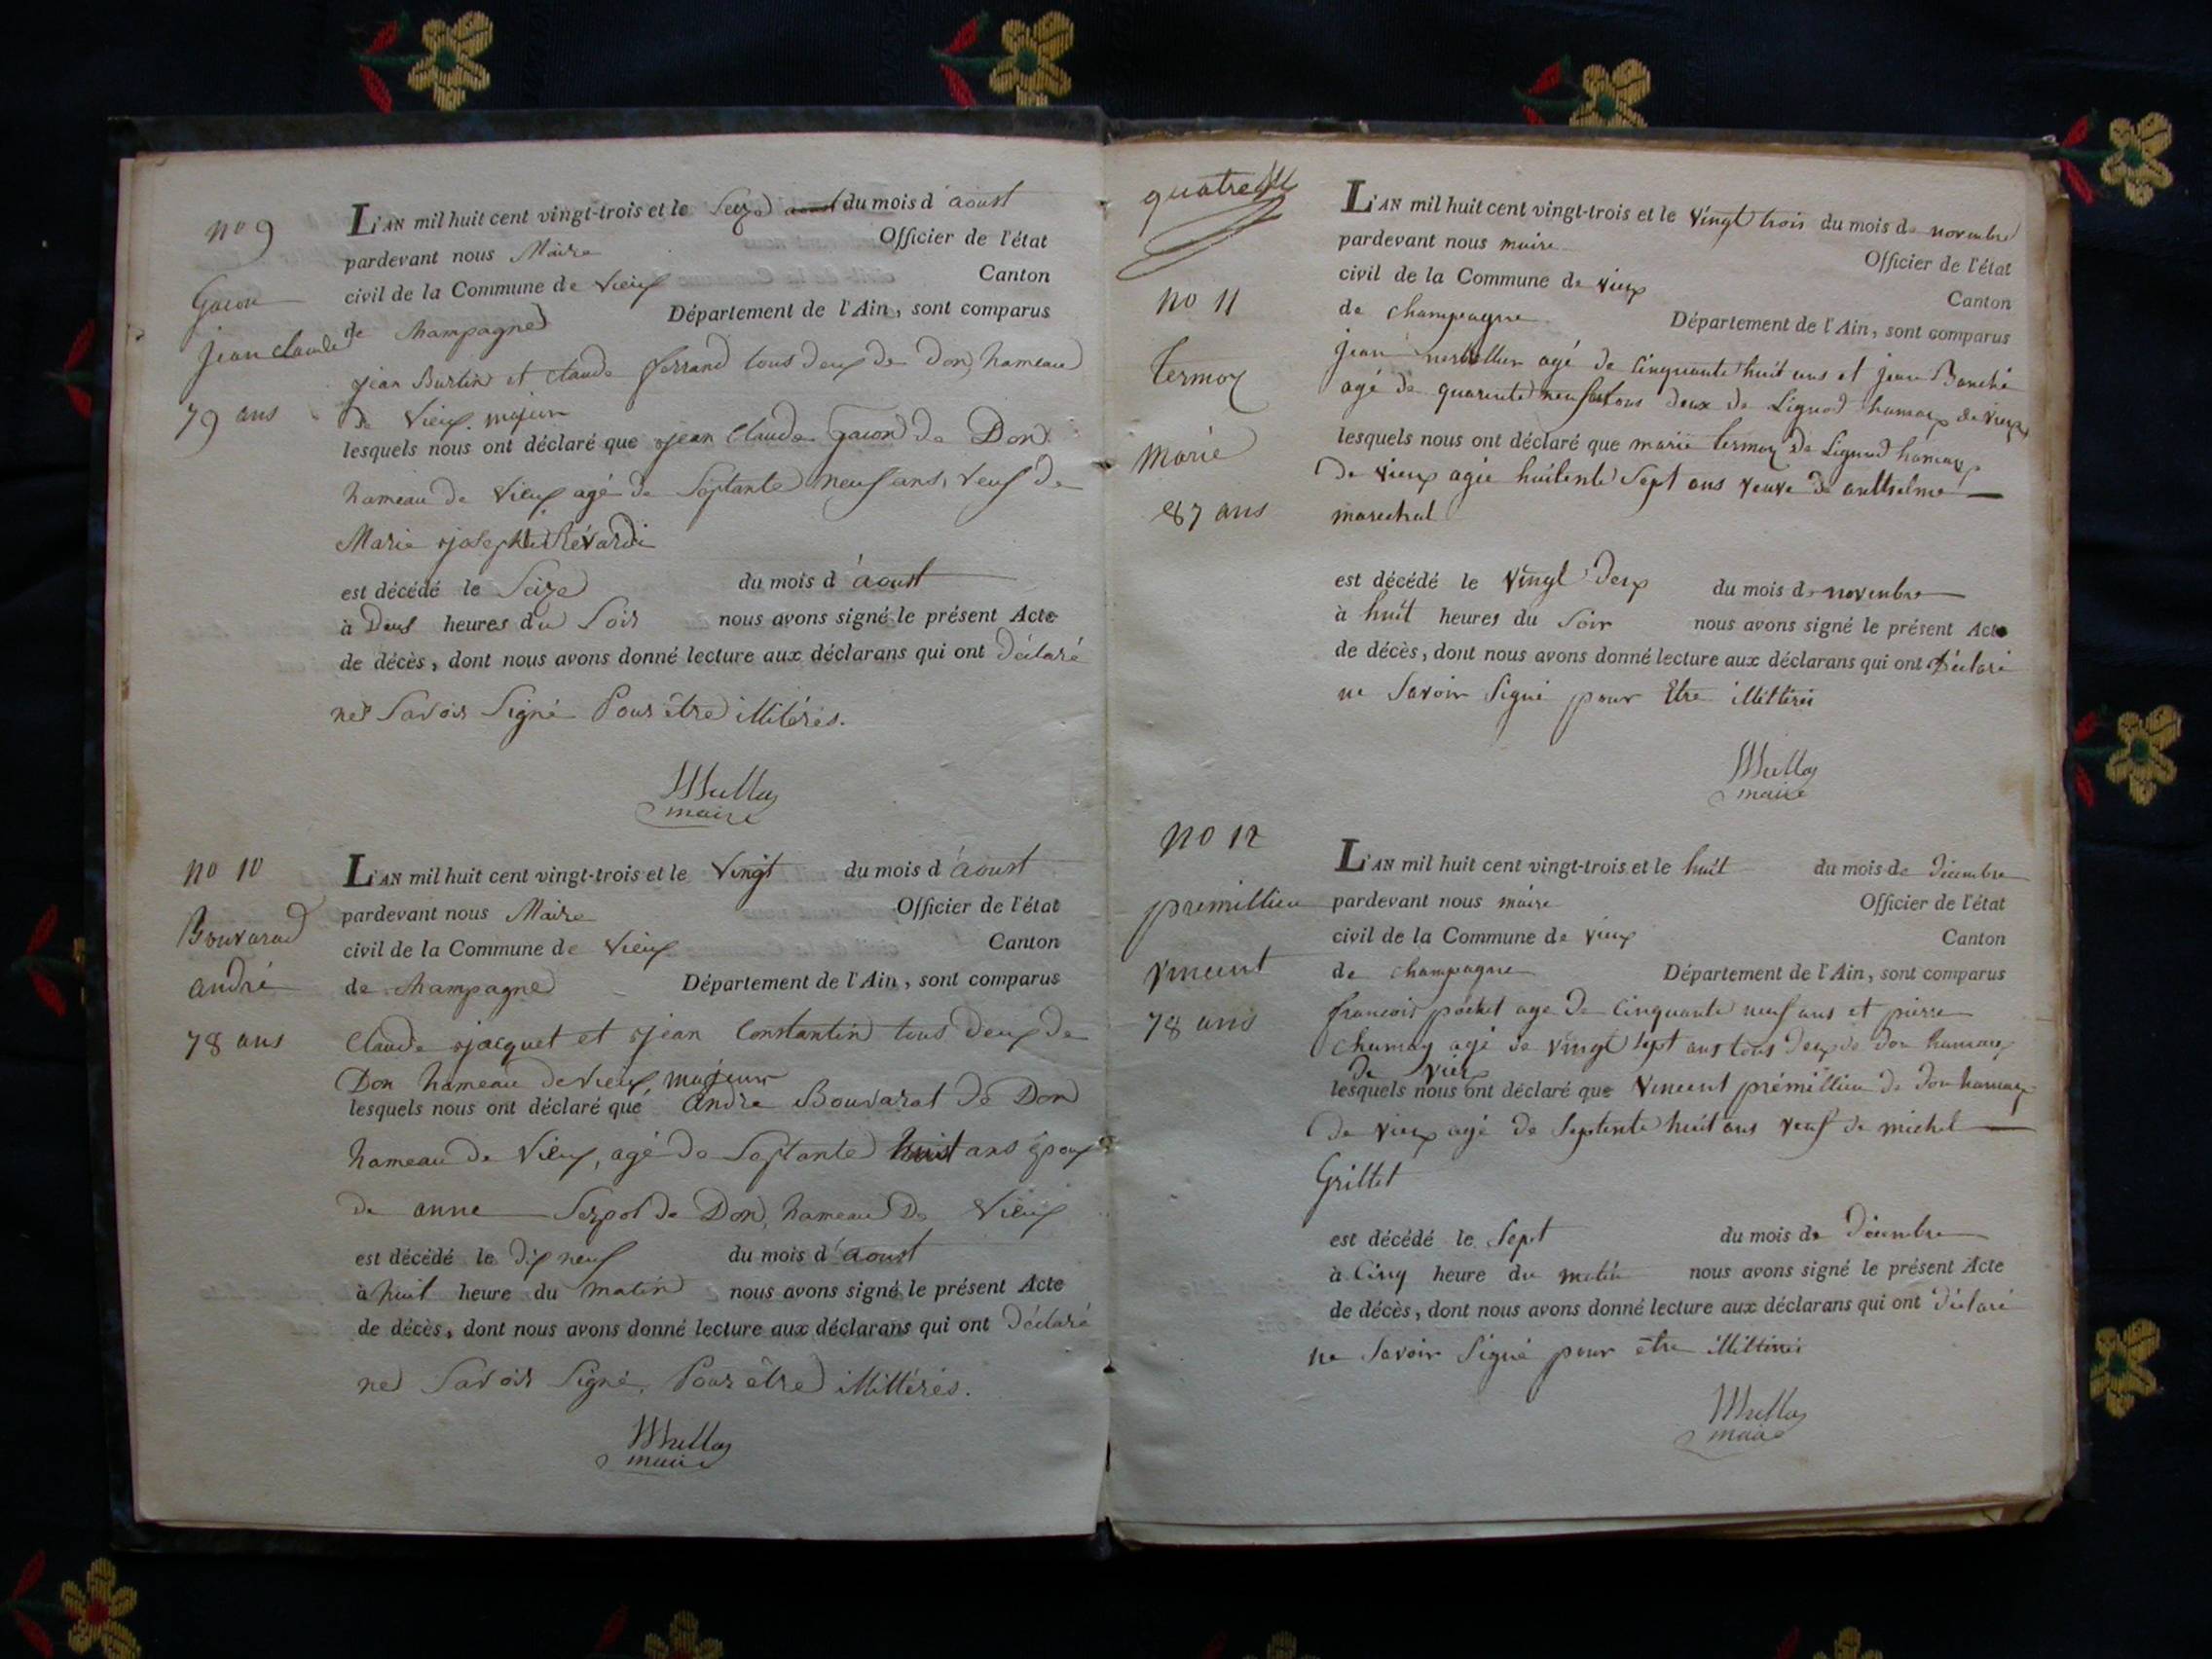 nº 9
Gacon
jean claude
79 ans
L'AN mil huit cent vingt-trois et le Seize du mois d'aoust
pardevant nous Maire Officier de l'état
civil de la Commune de Vieux Canton
de Champagne Département de l'Ain, sont comparus
jean Burtin et claude ferrand tous deux de Don, hameau
de Vieux. majeur
lesquels nous ont déclaré que jean Claude Gacon de Don
hameau de Vieux agé de Septante neuf ans, Veuf de
Marie josephte Révardi
est décédé le Seize du mois d'aoust
à Deux heures du Soir nous avons signé le présent Acte
de décès, dont nous avons donné lecture aux déclarans qui ont Déclaré
ne Savoir Signé Pour être illitérés.
maire
no 10
Bouvarad
andré
78 ans
L'AN mil huit cent vingt-trois et le Vingt du mois d'aoust
pardevant nous Maire Officier de l'état
civil de la Commune de Vieux Canton
de Champagne Département de l'Ain, sont comparus
Claude jacquet et jean Constantin tous Deux de
Don hameau de Vieux, majeur
lesquels nous ont déclaré que andré Bouvarat de Don
hameau de Vieux, agé de Septante huit ans époux
de anne Serpol de Don, hameau De Vieux
est décédé le dix neuf du mois d'aoust
à huit heure du matin nous avons signé le présent Acte
de décès, dont nous avons donné lecture aux déclarans qui ont Déclaré
ne Savoir Signé, Pour être illittérés.
maire
quatre
no 11
termoz
Marie
87 ans
L'AN mil huit cent vingt-trois et le Vingt trois du mois de novembre
pardevant nous maire Officier de l'état
civil de la Commune de vieux Canton
de champagne Département de l'Ain, sont comparus
jean agé de Cinquante huit ans et jean
agé de quarente neuf ans tous deux de Lignod hamaux de vieux
lesquels nous ont déclaré que marie termoz de Lignod hamaux
de vieux agée huitente Sept ans veuve de anthelme
marechal
est décédé le Vingt Deux du mois de novembre
à huit heures du Soir nous avons signé le présent Acte
de décès, dont nous avons donné lecture aux déclarans qui ont Déclaré
ne Savoir Signé pour Etre illittéré
maire
no 12
premillieu
Vincent
78 ans
L'AN mil huit cent vingt-trois et le huit du mois de Décembre
pardevant nous maire Officier de l'état
civil de la Commune de vieux Canton
de champagne Département de l'Ain, sont comparus
francois pochet age de Cinquante neuf ans et pierre
Chumay agé de Vingt Sept ans tous Deux de Don hamaux
de vieux
lesquels nous ont déclaré que Vincent prémillieu de Don hamaux
de vieux agé de Septente huit ans veuf de michel
Grillet
est décédé le Sept du mois de Décembre
à Cinq heure du matin nous avons signé le présent Acte
de décès, dont nous avons donné lecture aux déclarans qui ont Déclaré
ne Savoir Signé pour être illittéré
maire